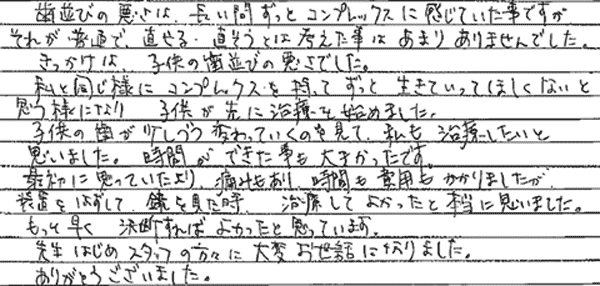 歯並びの悪さは、長い間ずっとコンプレックスに感じていた事ですが
それが普通で、直せる・直そうとは考えた事はあまりありませんでした。
きっかけは、子供の歯並びの悪さでした。
私と同じ様にコンプレックスを持ってずっと生きていってほしくないと
思う様になり 子供が先に治療を始めました。
子供の歯が少しづつ変わっていくのを見て、私も治療したいと
思いました。時間ができた事も大きかったです。
最初に思っていたより、痛みもあり、時間も費用もかかりましたが
装置をはずして、鏡を見た時、治療してよかったと本当に思いました。
もっと早く決断すればよかったと思っています。
先生はじめスタッフの方々に大変お世話になりました。
ありがとうございました。